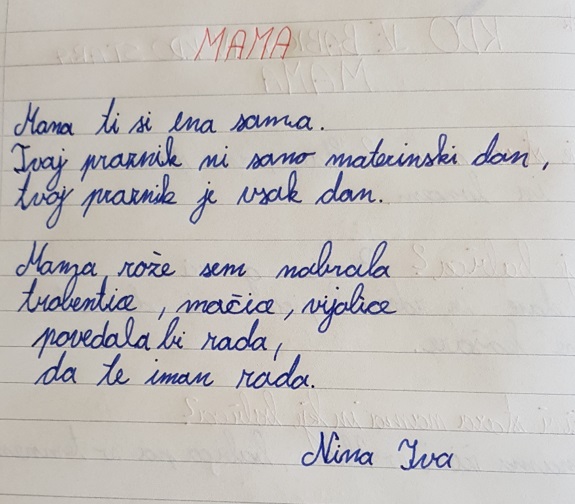 MAMA
Mama ti si ena sama.
Tvoj praznik ni samo materinski dan,
tvoj praznik je vsak dan.
Mama, rože sem nabrala
trobentice, mačice, vijolice
povedala bi rada,
da te imam rada.
Nina Iva